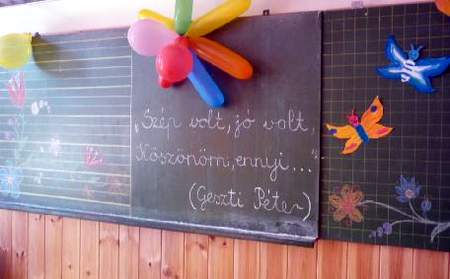 „Szép volt, jó volt,
Köszönöm, ennyi..."
(Geszti Péter)